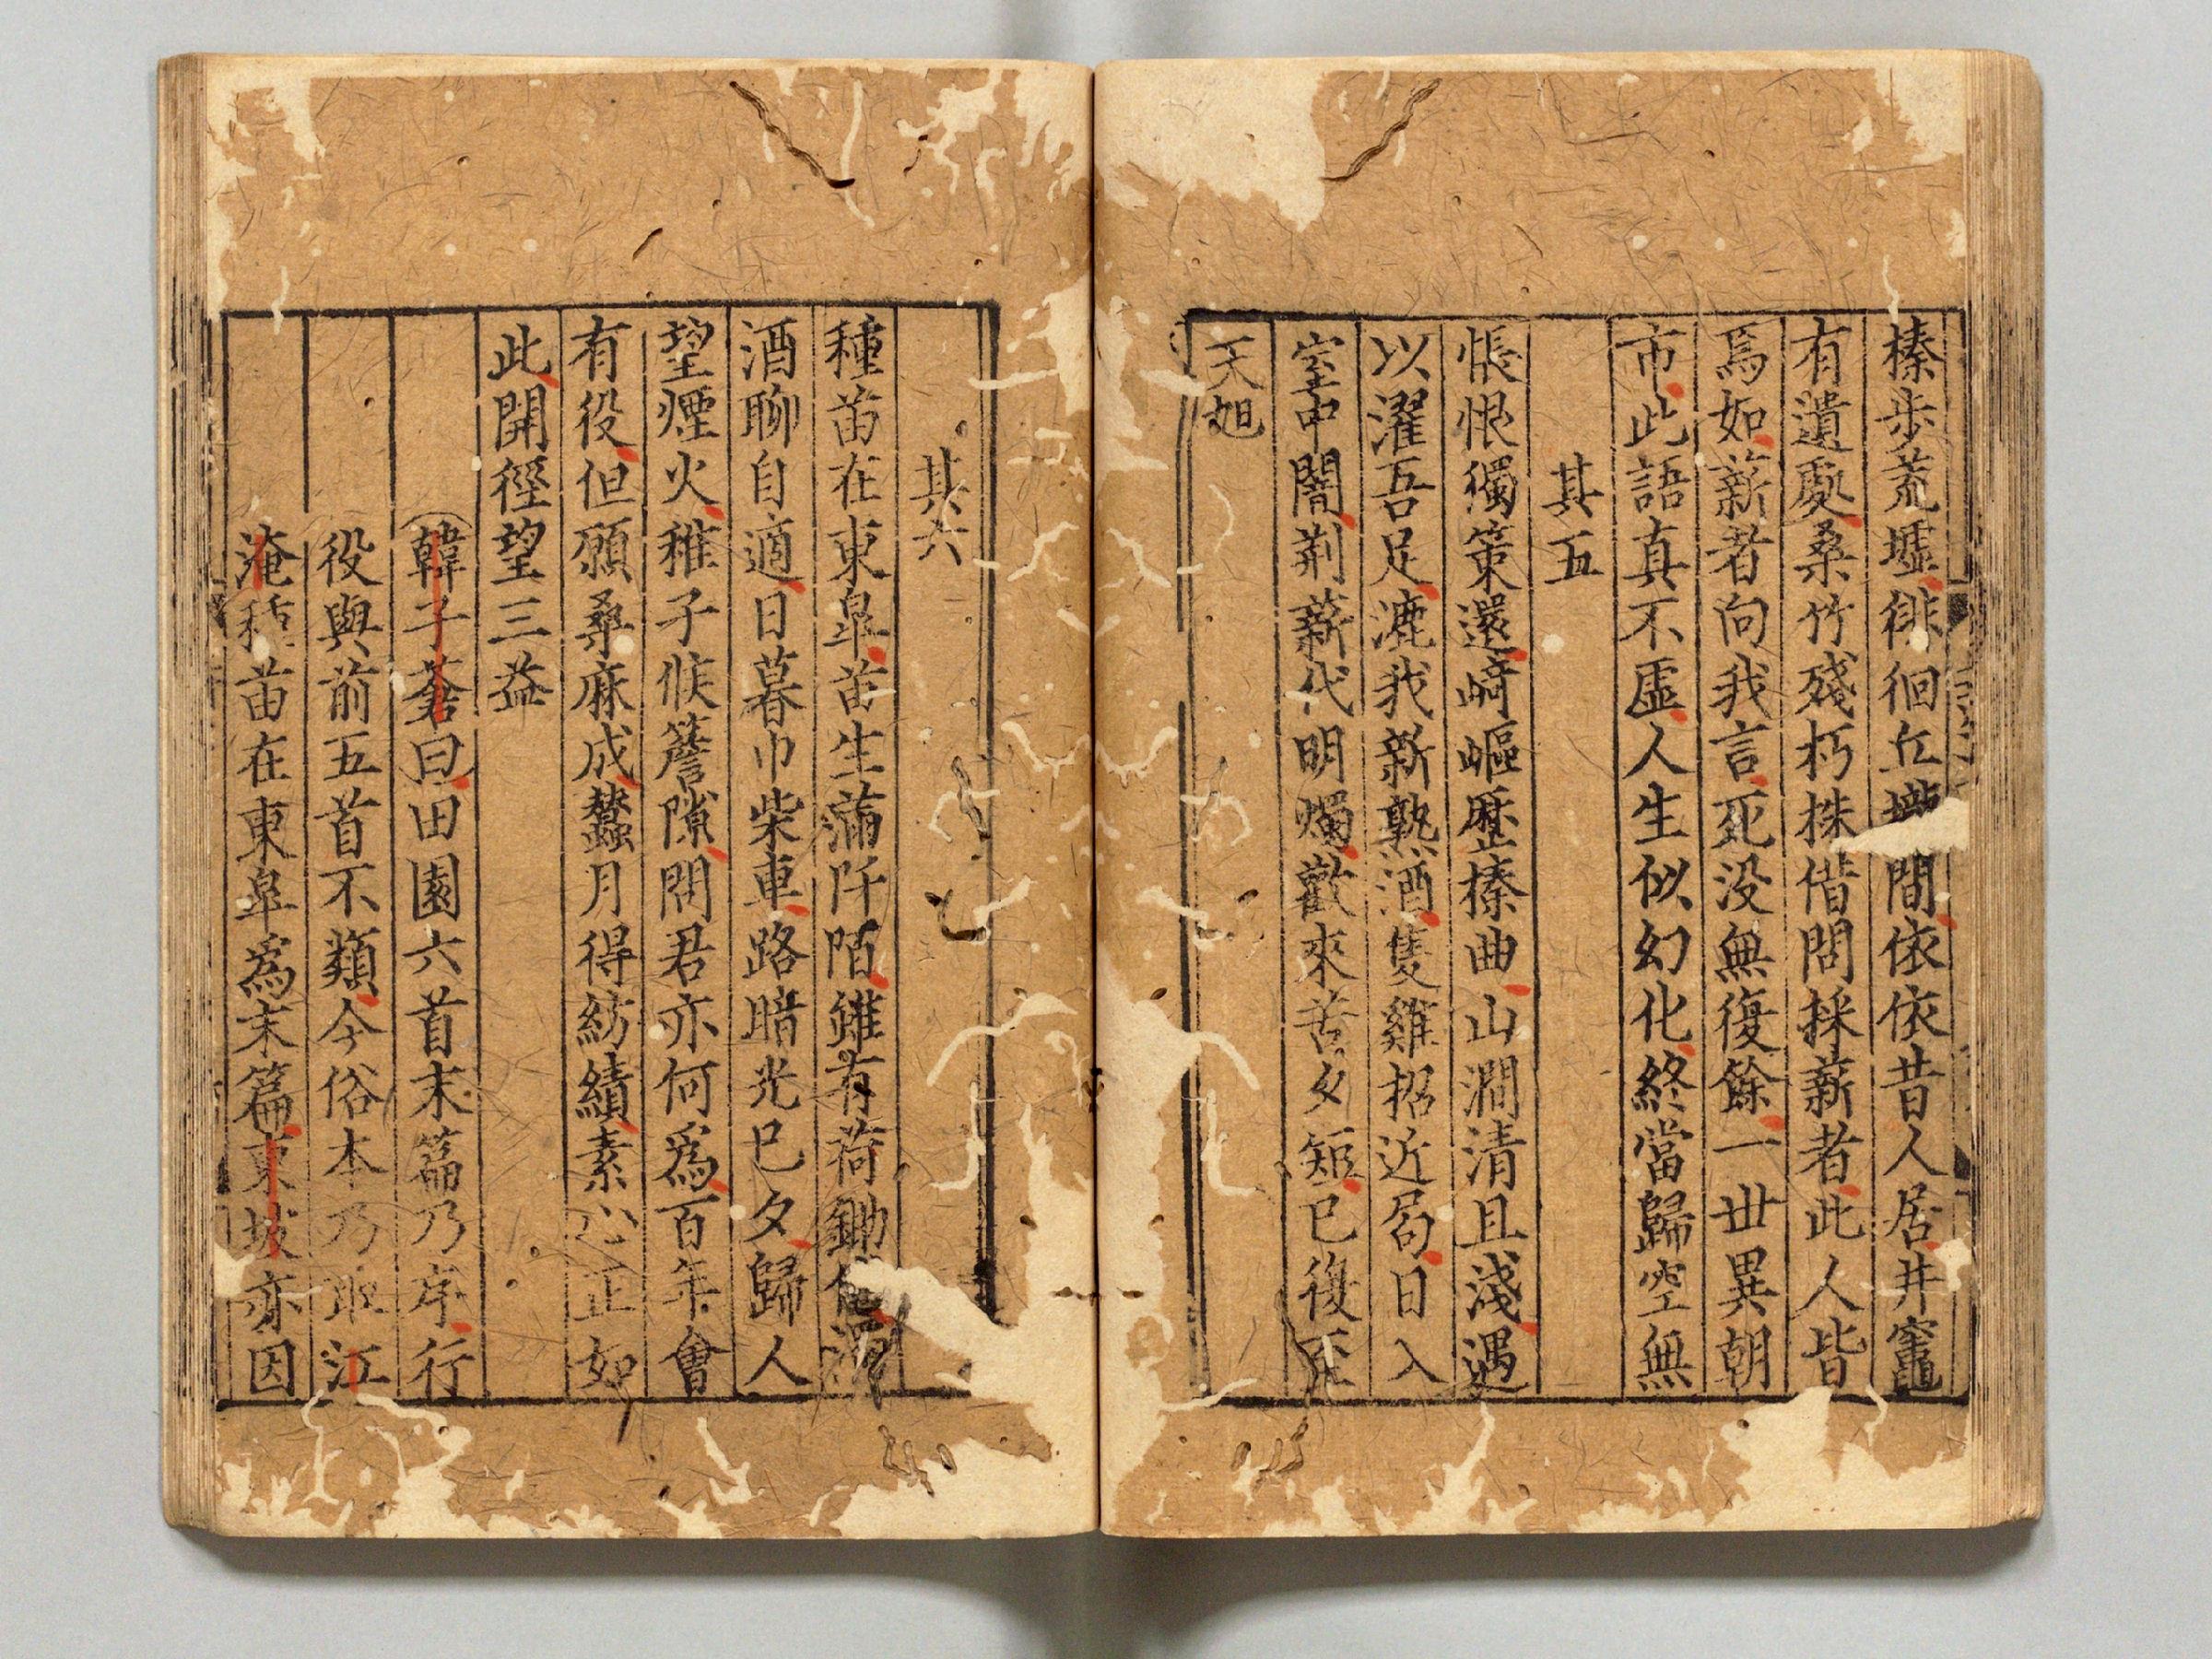 榛步荒墟徘徊丘壠間依依昔人居井竈
有遺處桑竹殘朽株借問採薪者此人皆
焉如薪者向我言死没無復餘一世異朝
市此語真不虛人生似幻化終當歸空無
其五
悵恨獨策還崎嶇歷榛曲山澗清且淺遇
以濯吾足漉我新熟酒隻雞招近局日入
室中闇荆薪代明燭歡來苦夕短已復至
天旭
其六
種苗在東皐苗生滿阡陌雖有荷鋤倦濁
酒聊自適日暮巾柴車路暗光已夕歸人
望煙火稚子候簷隙問君亦何爲百年會
有役但願桑麻成蠶月得紡績素心正如
此開徑望三益
韓子蒼曰田園六首末篇乃序行
役與前五首不類今俗本乃取江
淹種苗在東皐爲末篇東坡亦因